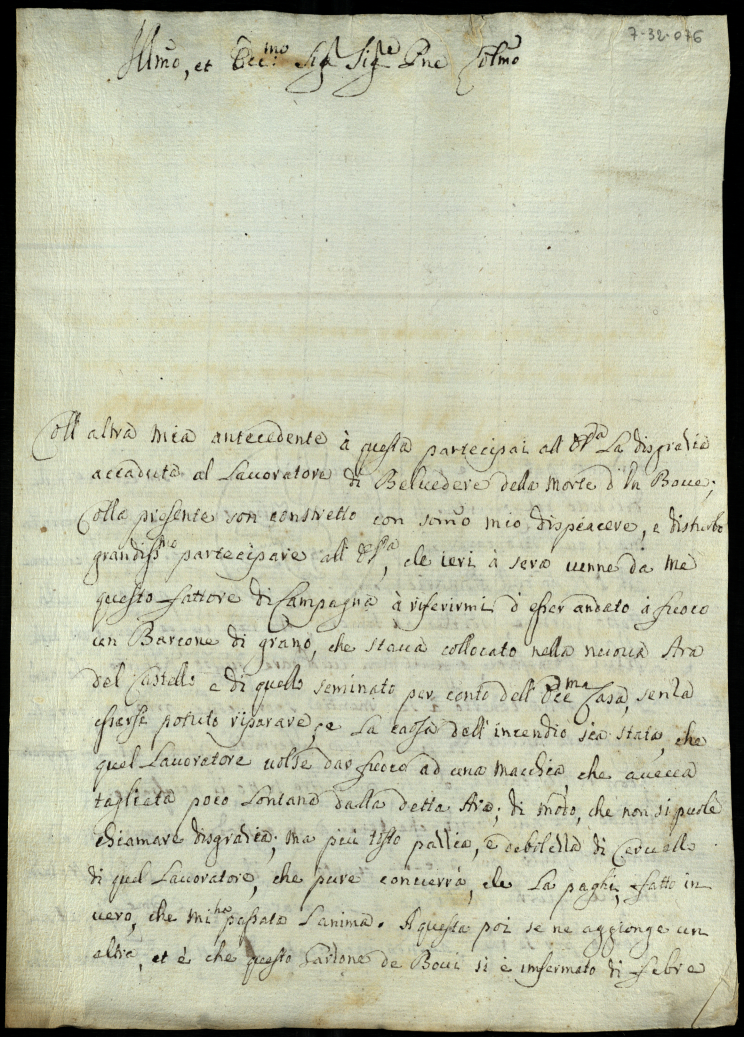 7-32-076
Illmo, et Ecc:mo Sigr Sigre Pne Colmo
Coll altra mia antecedente à questa partecipai all La disgrazia
accaduta al Lavoratore di Belvedere della morte d'Un Boue;
Colla presente son constretto con somo mio dispiacere, e disturbo
grandissmo partecipare all' che ieri à sera venne da me
questo fattore di Campagna à riferirmi d'esser andato à fuoco
un Barcone di grano, che stava collocato nella nuova Ara
del Castello e di quello seminato per conto dell' Eccma Casa, senza
essersi potuto riparare, e La causa dell'incendio sia stata, che
quel Lavoratore volse dar fuoco ad una macchia, che aveva
tagliata poco Lontano dalla detta Ara; di modo, che non si puole
chiamare disgrazia; ma più tosto pazzia, e debolezza di Cervello
di quel Lavoratore, che pure converrà, che La paghi, fatto in
vero, che mi ha passata L'anima. A questa poi se ne aggionge un
altra, et è che questo de Bovi si è infermato di febre